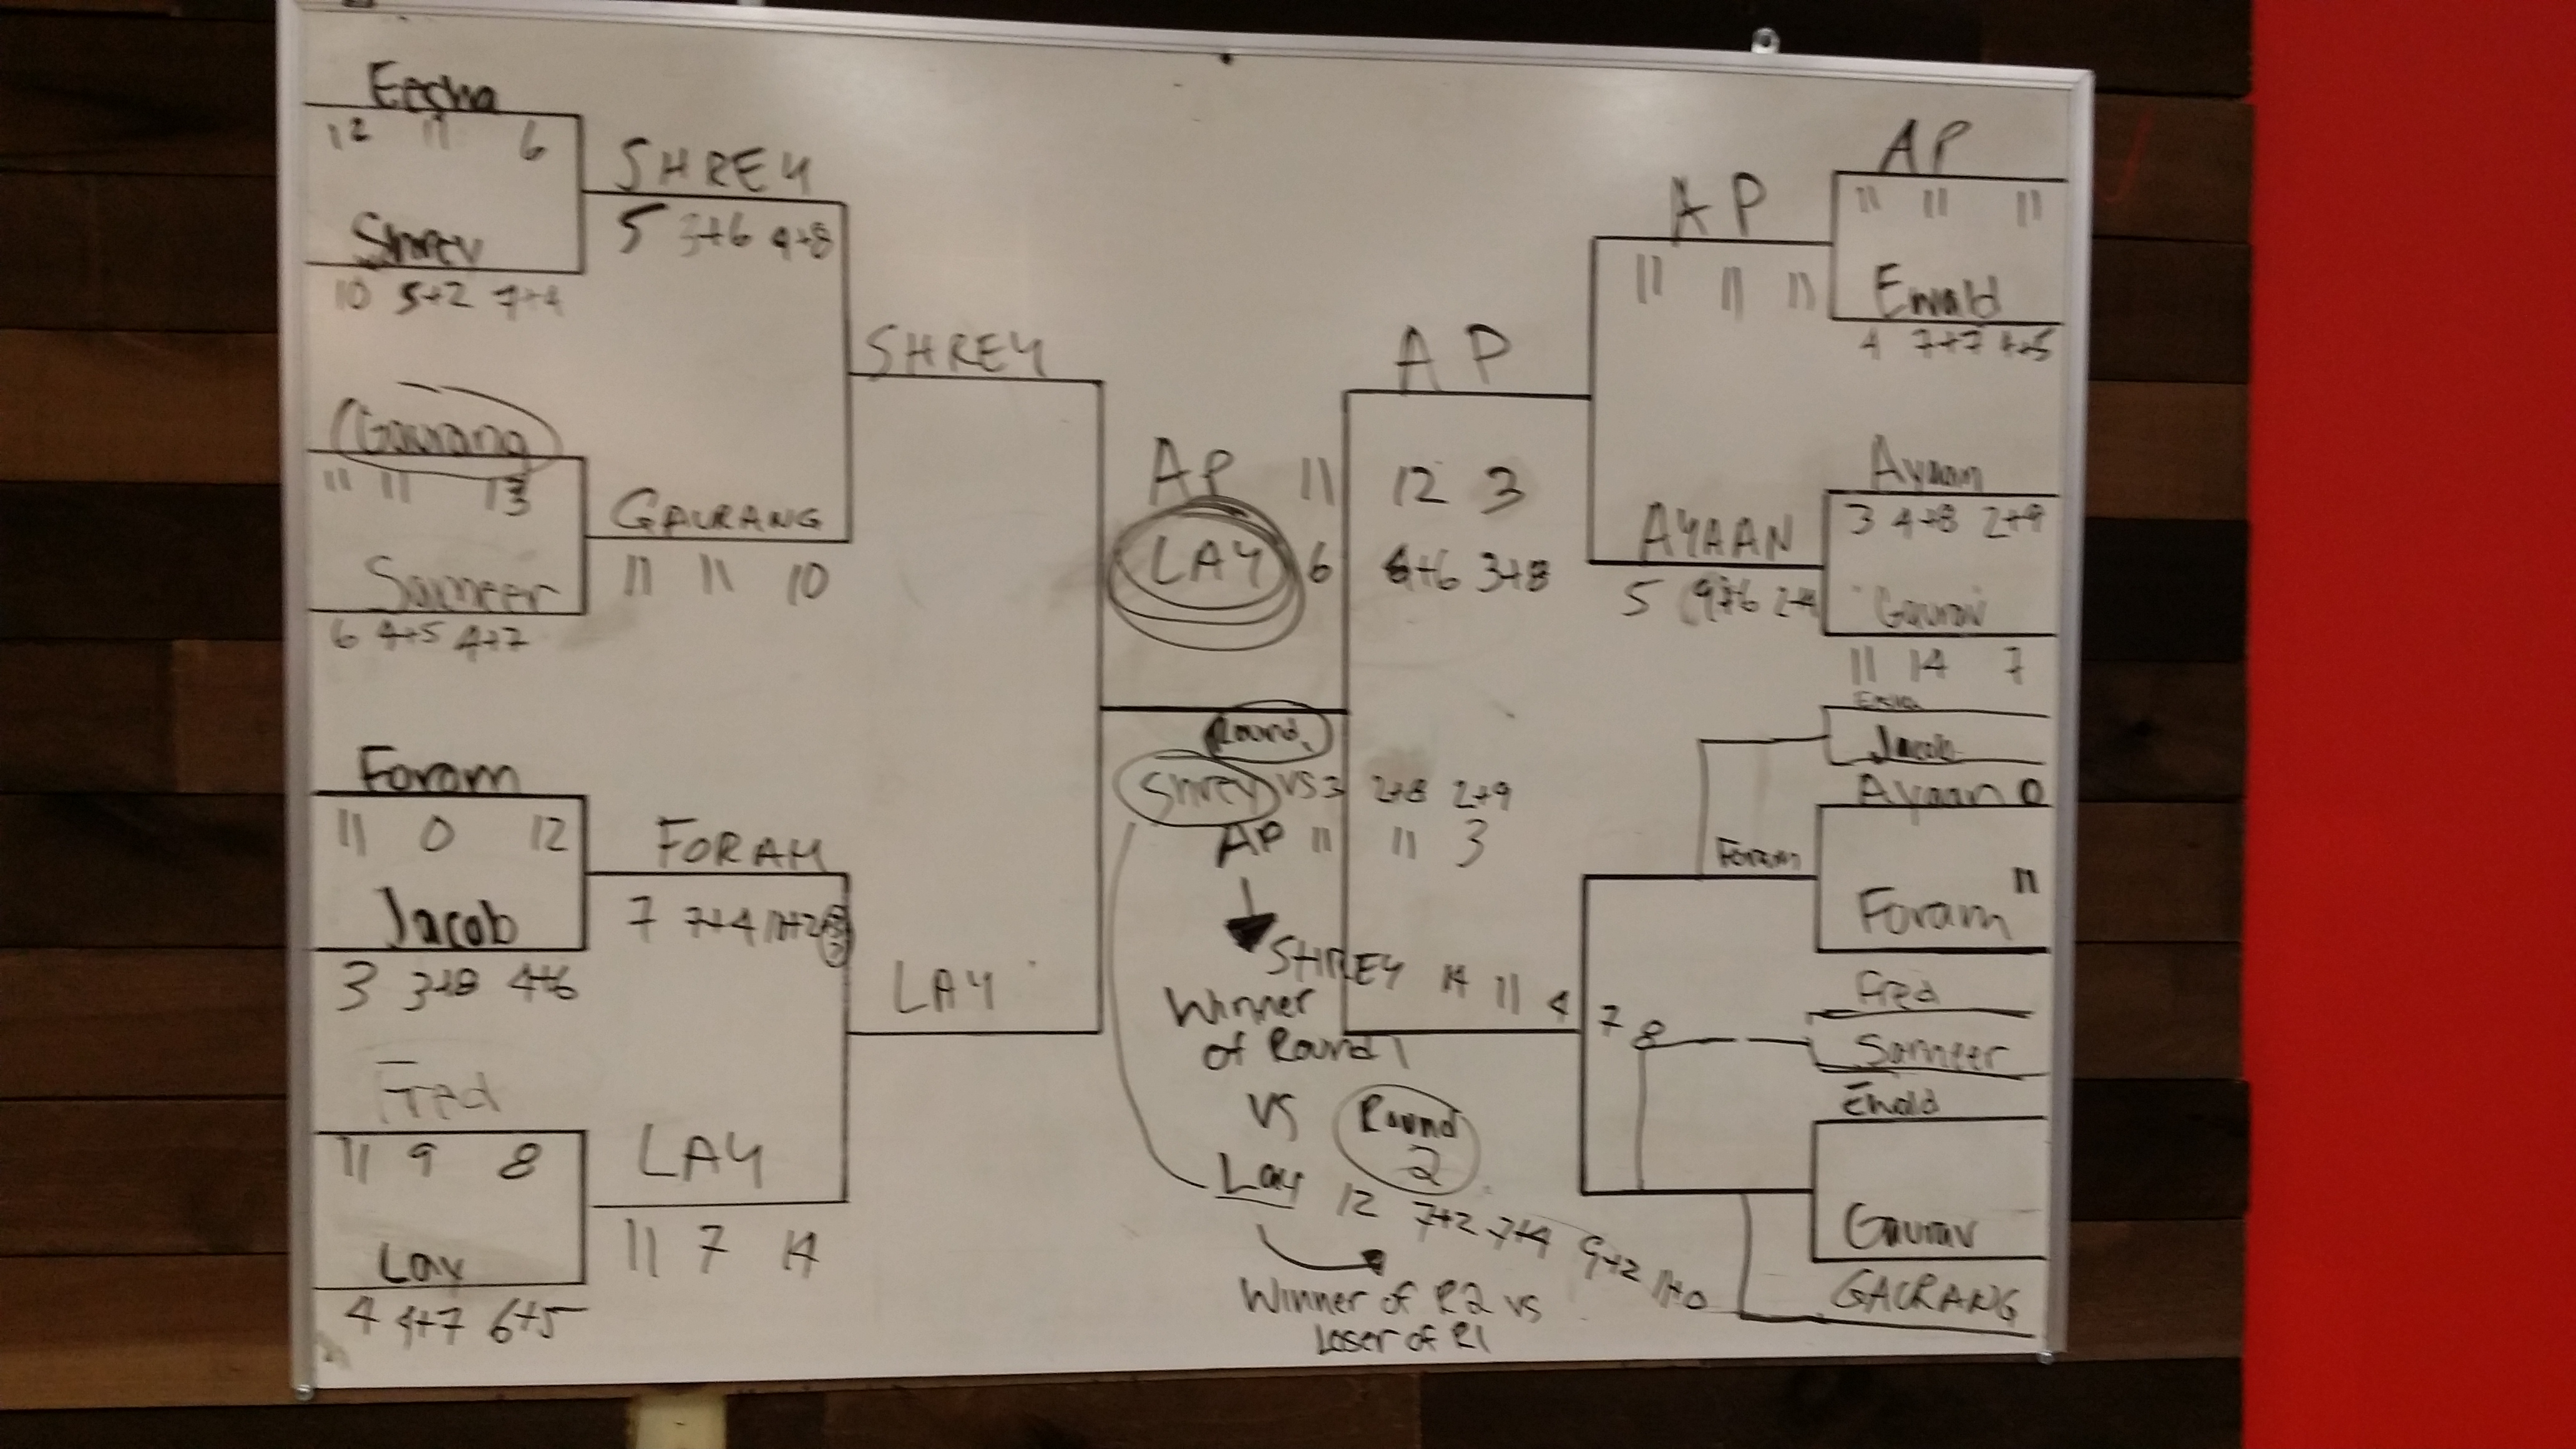 Eesha
12 11 6
Shrey
10 5+2 7+4
Gaurang
11 11 13
Sameer
6 4+5 4+7
Foram
11 0 12
Jacob
3 3+8 4+6
Fred
11 9 8
Lay
4 4+7 6+5
SHREY
5 3+6 4+8
GAURANG
11 11 10
FORAM
7 7+4
LAY
11 7 14
SHREY
LAY
AP 11 12 3
LAY 6 6+6 3+8
Round 1
Shrey vs 3 2+8 2+9
AP 11 11 3
SHREY 14 11 4 7 8
Winner
of Round 1
vs
Round
2
Lay 12 7+2 7+4 9+2 11+0
Winner of R2 vs
Loser of R1
AP
AP
11 11 11
AYAAN
5
AP
11 11 11
Ewald
4 7+7 4+5
Ayaan
3 4+8 2+9
Gaurav
11 14 7
Jacob
Ayaan 0
Foram
Foram 11
Fred
Sameer
Ewald
Gaurav
GAURANG